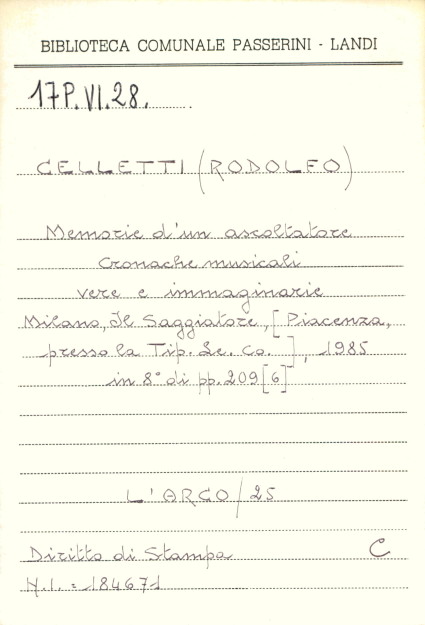 BIBLIOTECA COMUNALE PASSERINI - LANDI
17P.VI.28.
CELLETTI (RODOLFO)
Memorie d'un ascoltatore
Cronache musicali
vere e immaginarie
Milano, Il Saggiatore, [Piacenza,
presso la Tip. Le. Co. ], 1985
in 8° di pp. 209 [6]
L'ARCO / 25
Diritto di Stampa C
N.I. = 184671